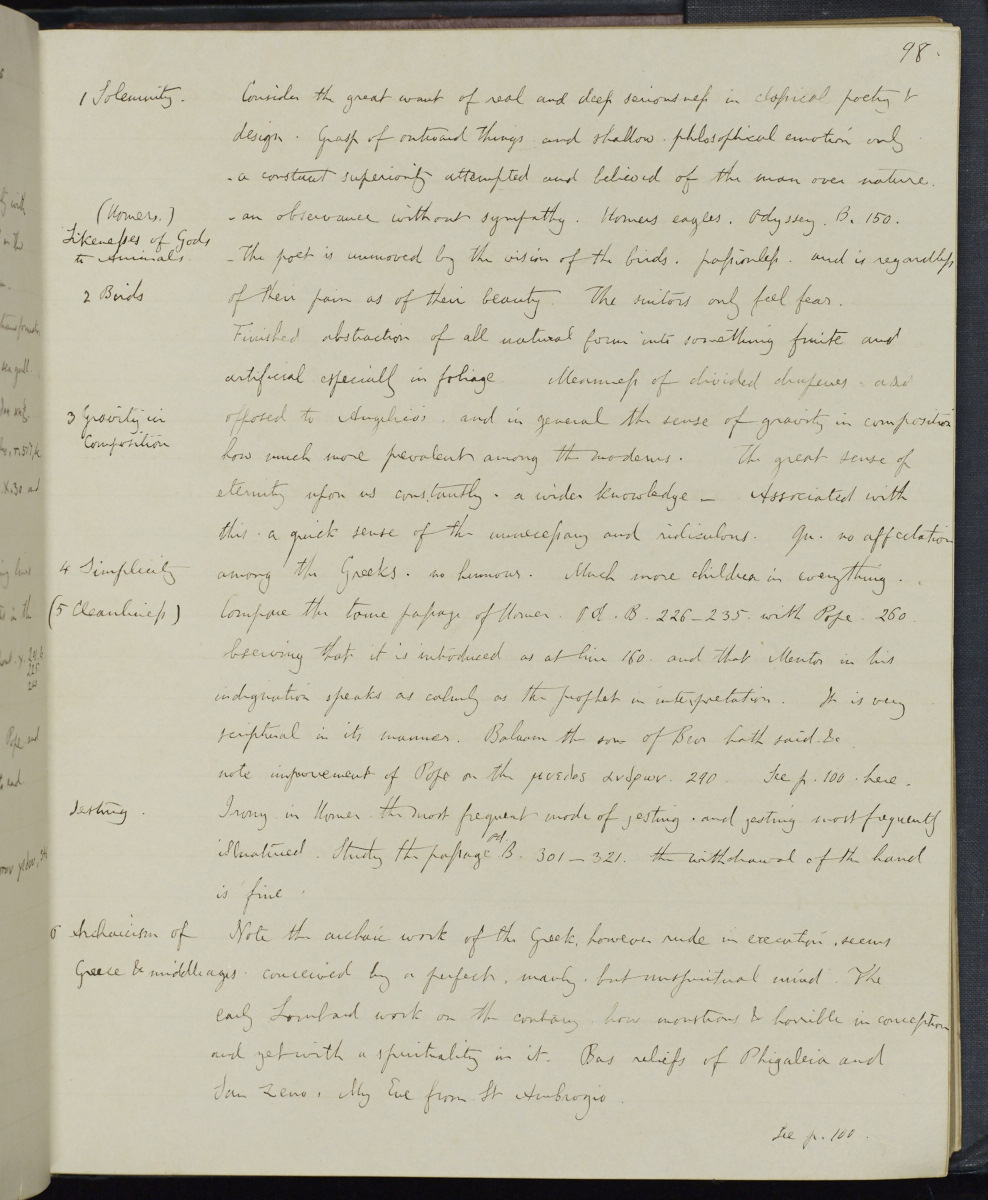 98.
1 Solemnity. Consider the great want of real and deep seriousness in classical poetry &
design. Grasp of outward things and shallow philosophical emotion only
- a constant superiority attempted and believed of the man over nature.
(Homers.) - an observance without sympathy. Homers eagles. Odyssey. B. 150.
Likenesses of Gods
to Animals. - The poet is unmoved by the vision of the birds. passionless. and is regardless
2 Birds of their pain as of their beauty. The suitors only feel fear.
Finished abstraction of all natural form into something finite and
artificial especially in foliage Meanness of divided draperies. and
3 Gravity in opposed to Angelico's. and in general the sense of gravity in composition
Composition how much more prevalent among the moderns. The great sense of
eternity upon us constantly. a wider knowledge - Associated with
this. a quick sense of the unnecessary and ridiculous. Qu. no affectation
4 Simplicity among the Greeks. no humour. Much more children in everything.
(5 Cleanliness) Compare the tame passage of Homer. Od. B. 226-235. with Pope. 260.
observing that it is introduced as at line 160. and that Mentor in his
indignation speaks as calmly as the prophet in interpretation. It is very
scriptural in its manner. Balaam the son of Beor hath said. &c
note improvement of Pope on the ανδρων. 290. See p. 100. here.
Jesting. Irony in Homer the most frequent mode of jesting. and jesting most frequently
illnatured. Study the passage Od. B. 301-321. the withdrawal of the hand
is fine.
6 Archaicism of Note the archaic work of the Greek, however rude in execution, seems
Greece & middle ages. conceived by a perfect, manly, but unspiritual mind. The
early Lombard work on the contrary how monstrous & horrible in conception
and yet with a spirituality in it. Bas reliefs of Phigaleia and
San Zeno. My Eve from St Ambrogio.
See p. 100.